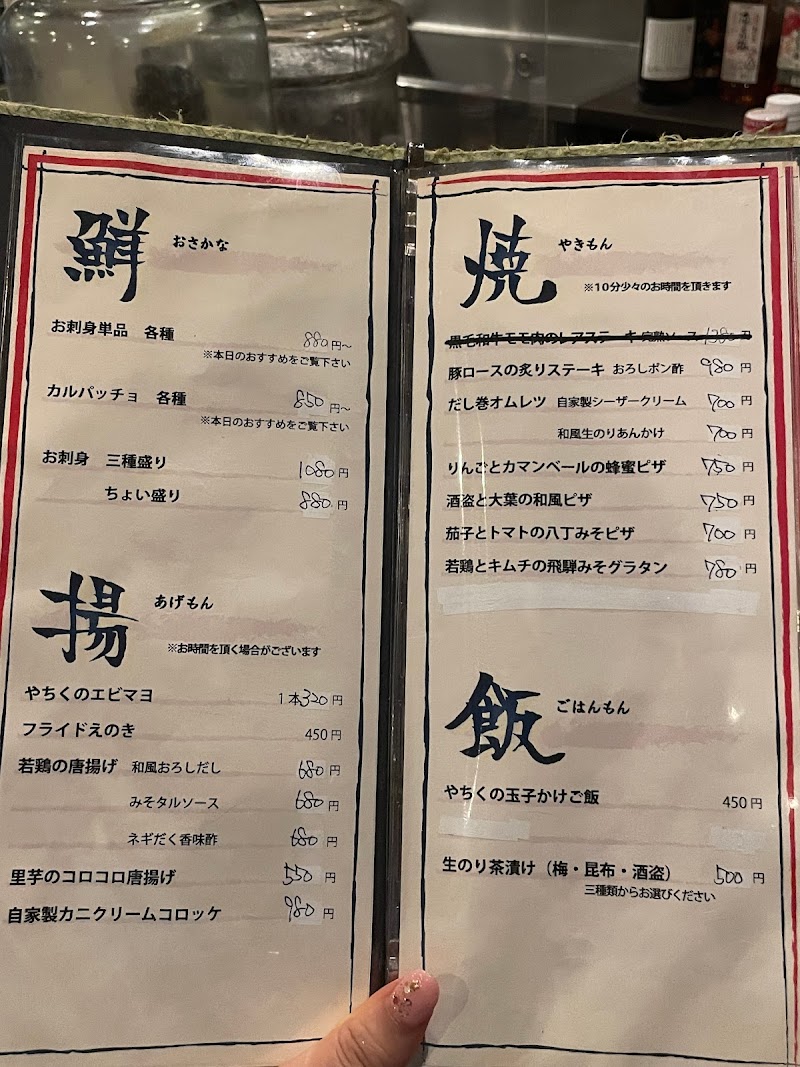 鮮 おさかな
お刺身単品 各種 880円～
※本日のおすすめをご覧下さい
カルパッチョ 各種 850円～
※本日のおすすめをご覧下さい
お刺身 三種盛り 1080円
ちょい盛り 880円
揚 あげもん
※お時間を頂く場合がございます
やちくのエビマヨ 1本320円
フライドえのき 450円
若鶏の唐揚げ 和風おろしだし 680円
みそタルソース 680円
ネギだく香味酢 680円
里芋のコロコロ唐揚げ 550円
自家製カニクリームコロッケ 980円
焼 やきもん
※10分少々のお時間を頂きます
黒毛和牛モモ肉のレアステーキ 完熟ソース 1380円
豚ロースの炙りステーキ おろしポン酢 980円
だし巻オムレツ 自家製シーザークリーム 700円
和風生のりあんかけ 700円
りんごとカマンベールの蜂蜜ピザ 750円
酒盗と大葉の和風ピザ 750円
茄子とトマトの八丁みそピザ 700円
若鶏とキムチの飛騨みそグラタン 780円
飯 ごはんもん
やちくの玉子かけご飯 450円
生のり茶漬け（梅・昆布・酒盗） 500円
三種類からお選びください